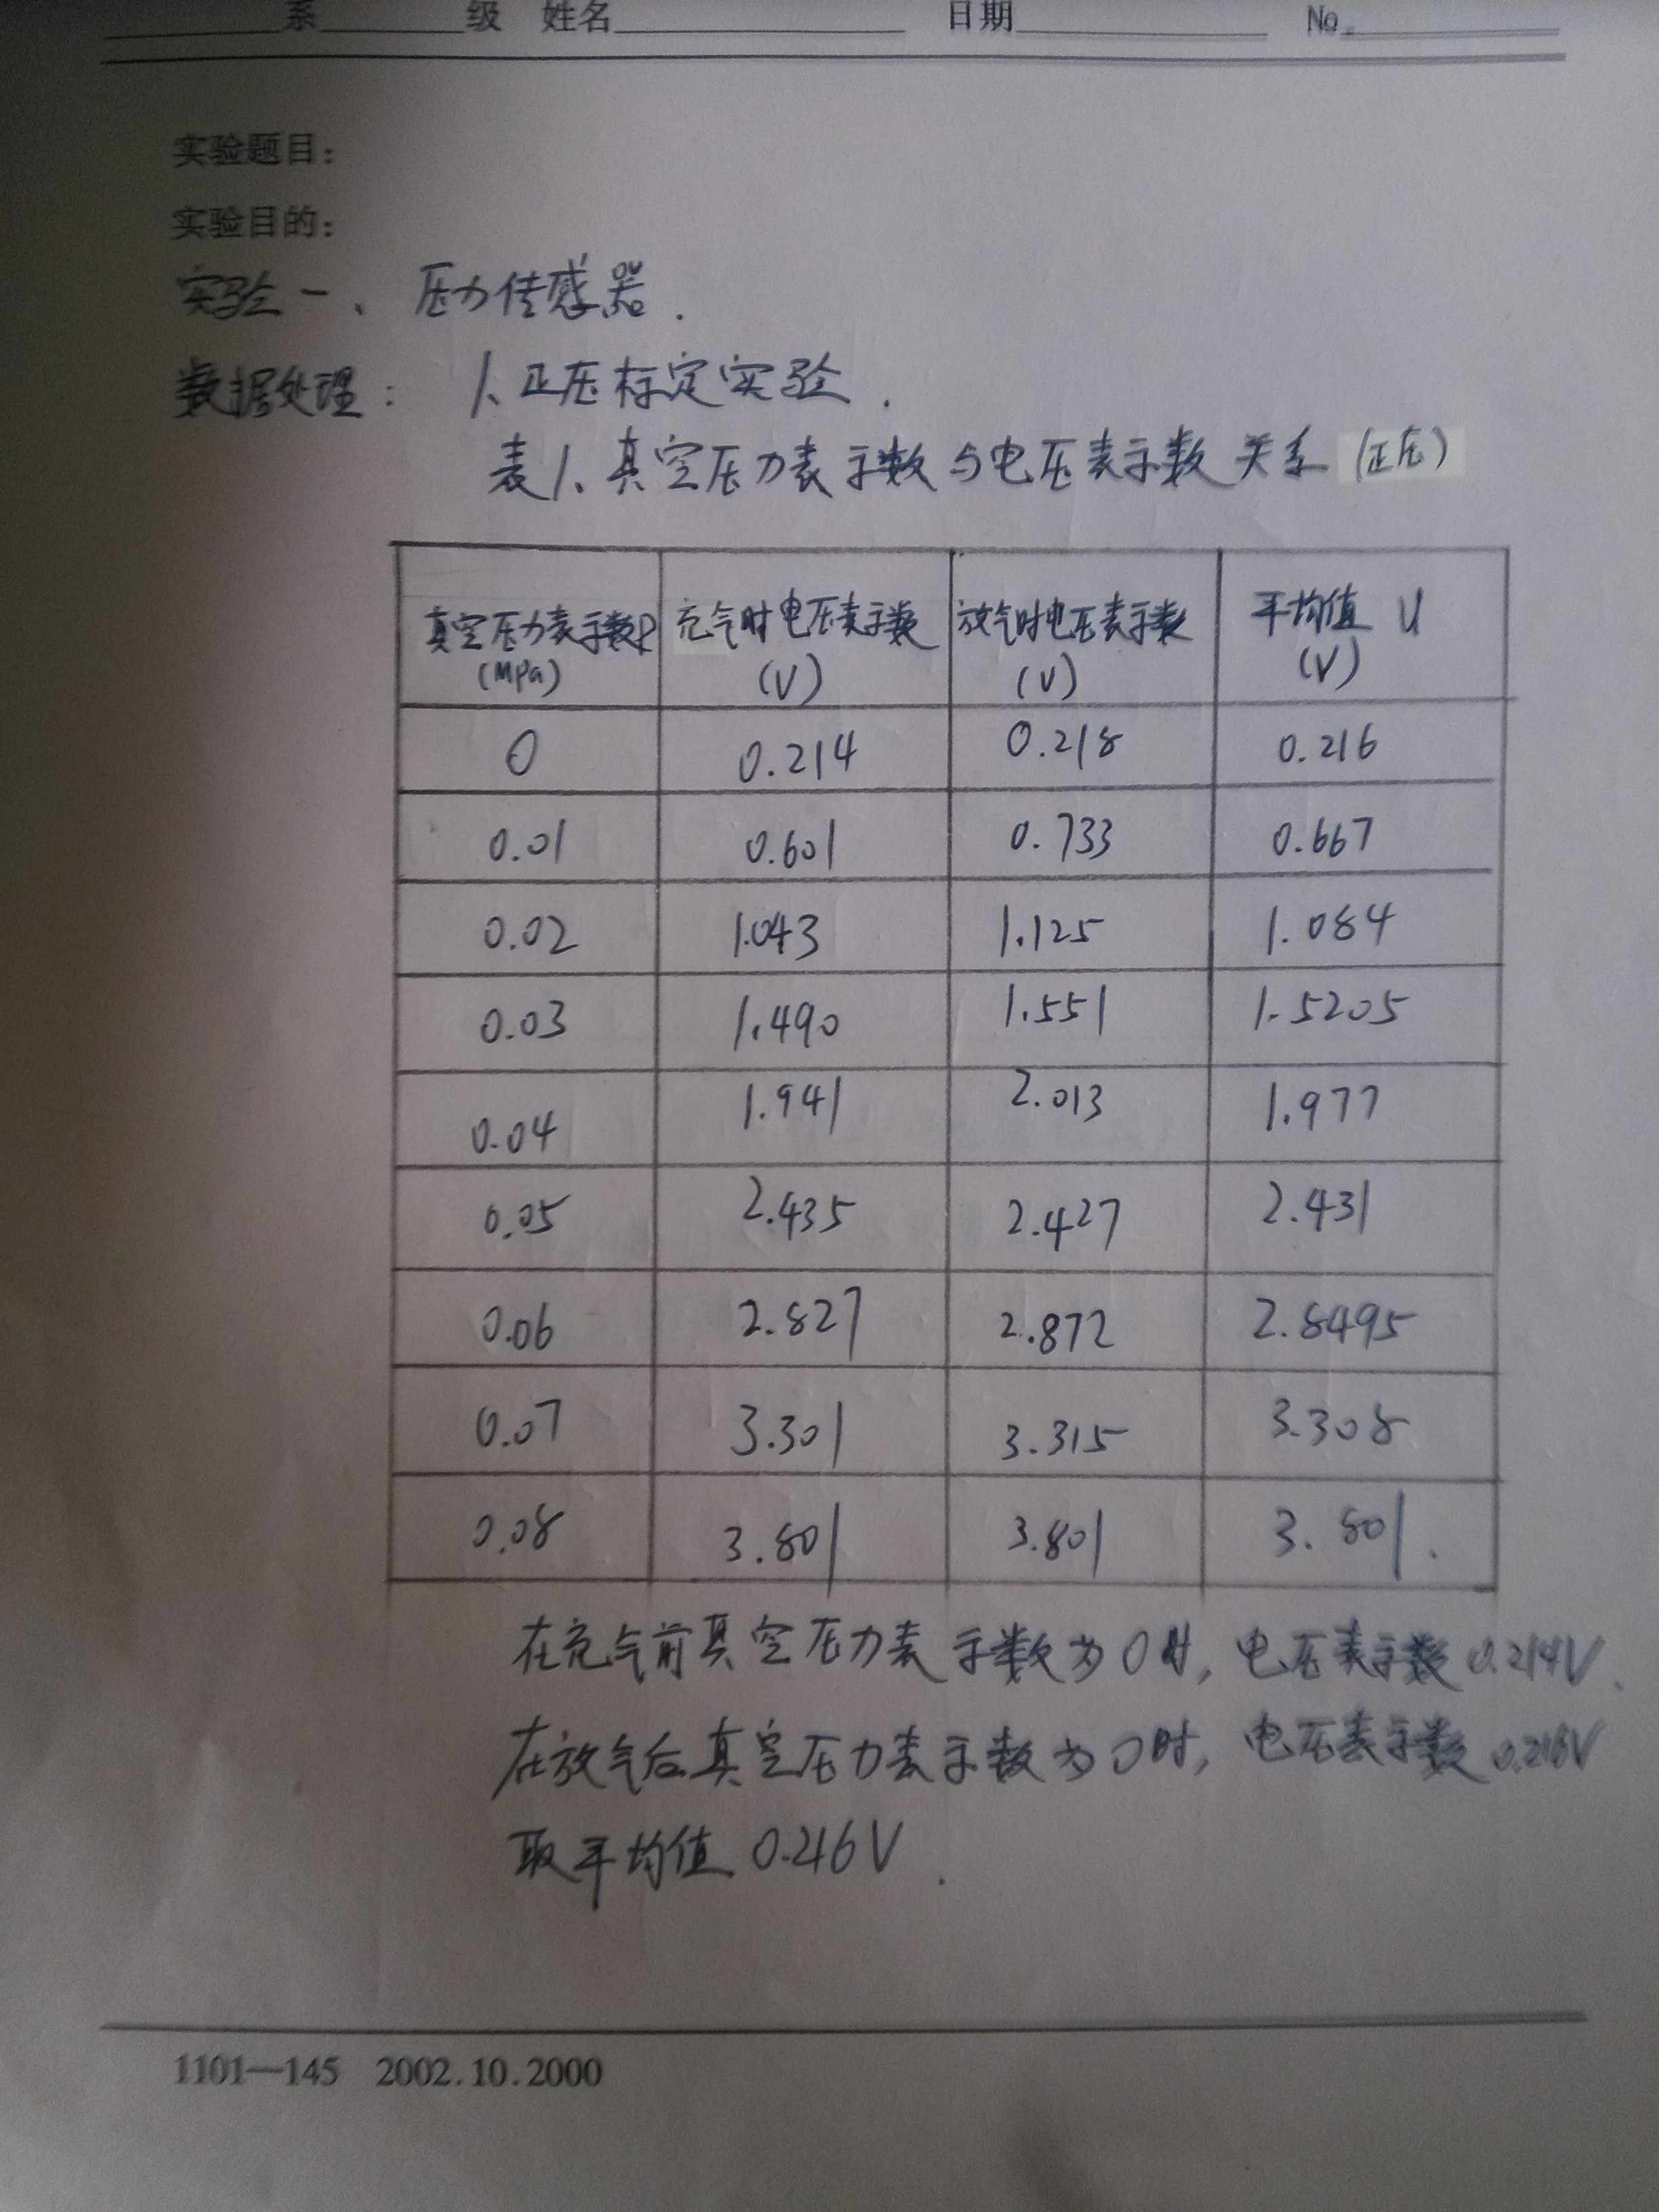 系 级 姓名 日期 No.
实验题目：
实验目的：
实验一、压力传感器.
数据处理： 1、正压标定实验.
表1、真空压力表示数与电压表示数关系(正压)
真空压力表示数P(MPa) 充气时电压表示数(V) 放气时电压表示数(V) 平均值 U(V)
0 0.214 0.218 0.216
0.01 0.601 0.733 0.667
0.02 1.043 1.125 1.084
0.03 1.490 1.551 1.5205
0.04 1.941 2.013 1.977
0.05 2.435 2.427 2.431
0.06 2.827 2.872 2.8495
0.07 3.301 3.315 3.308
0.08 3.801 3.801 3.801.
在充气前真空压力表示数为0时,电压表示数0.214V.
在放气后真空压力表示数为0时,电压表示数
取平均值0.216V.
1101—145 2002.10.2000